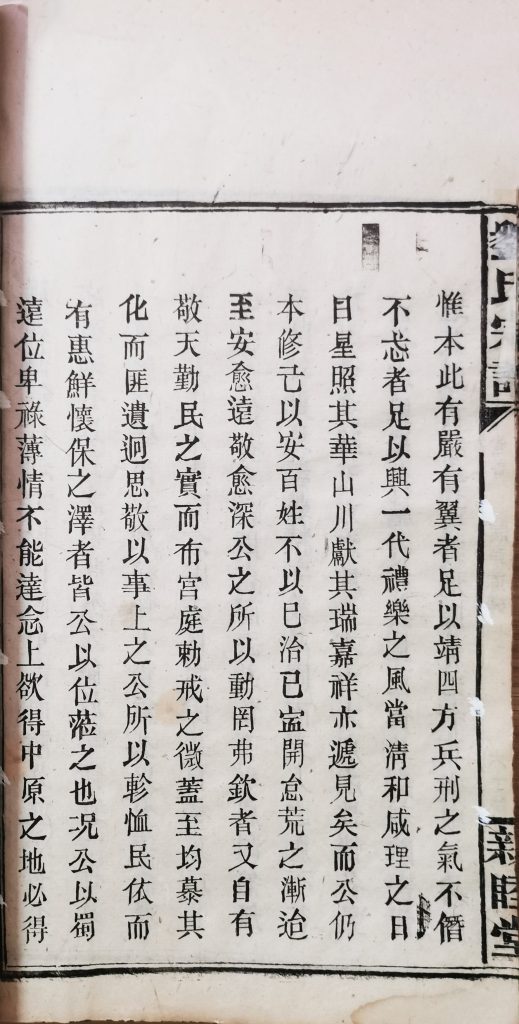 惟本此有嚴有翼者足以靖四方兵刑之氣不僭
不忒者足以興一代禮樂之風當清和咸理之日
日星照其華山川獻其瑞嘉祥亦遞見矣而公仍
本修己以安百姓不以已治已盜開怠荒之漸治
至安愈遠敬愈深公之所以動罔弗欽者又自有
敬天勤民之實而布宮庭勅戒之微蓋至均慕其
化而匪遺迥思敬以事上之公所以軫恤民依而
有惠鮮懷保之澤者皆公以位蒞之也况公以蜀
遠位卑祿薄情不能達念上欲得中原之地必得
氏宗譜
新睦堂